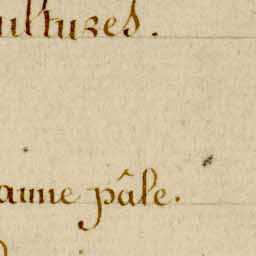 ultures.
aune pâle.